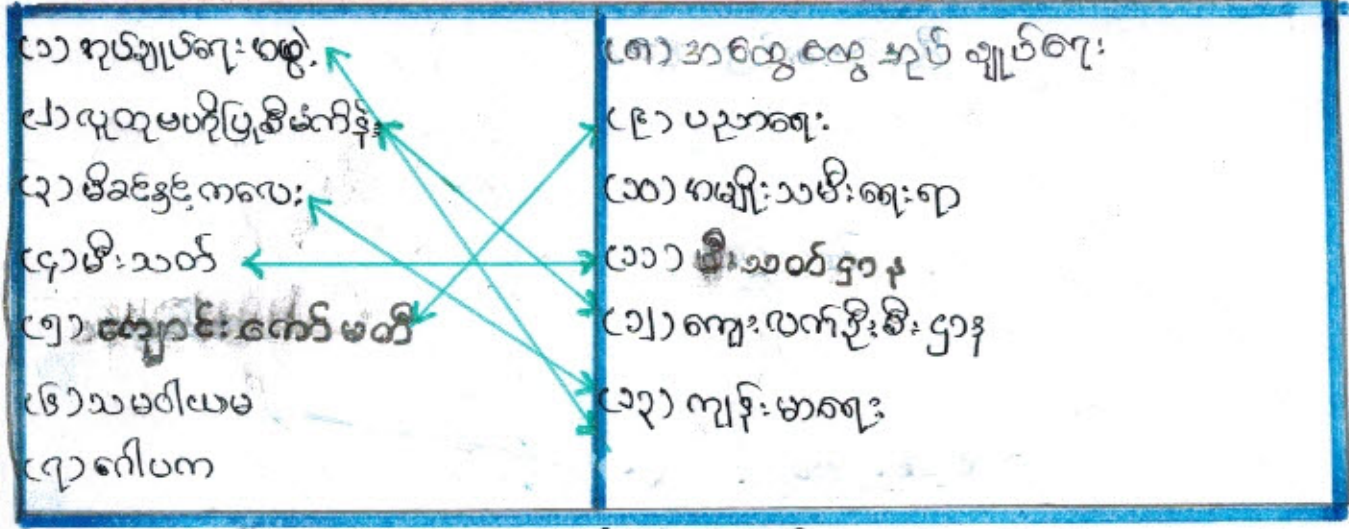 (၁) အုပ်ချုပ်ရေး အဖွဲ့
(၂) လူထုမဟိုပြုစီမံကိန်း
(၃) မိခင်နှင့် ကလေး
(၄) မီးသတ်
(၅) ကျောင်း ကော်မတီ
(၆) သမဝါယမ
(၇) ဂေါပက
(၈) အထွေထွေ အုပ်ချုပ်ရေး
(၉) ပညာရေး
(၁၀) အမျိုးသမီးရေးရာ
(၁၁) မီးသတ်ဌာန
(၁၂) ကျေးလက်ဦးစီးဌာန
(၁၃) ကျန်းမာရေး